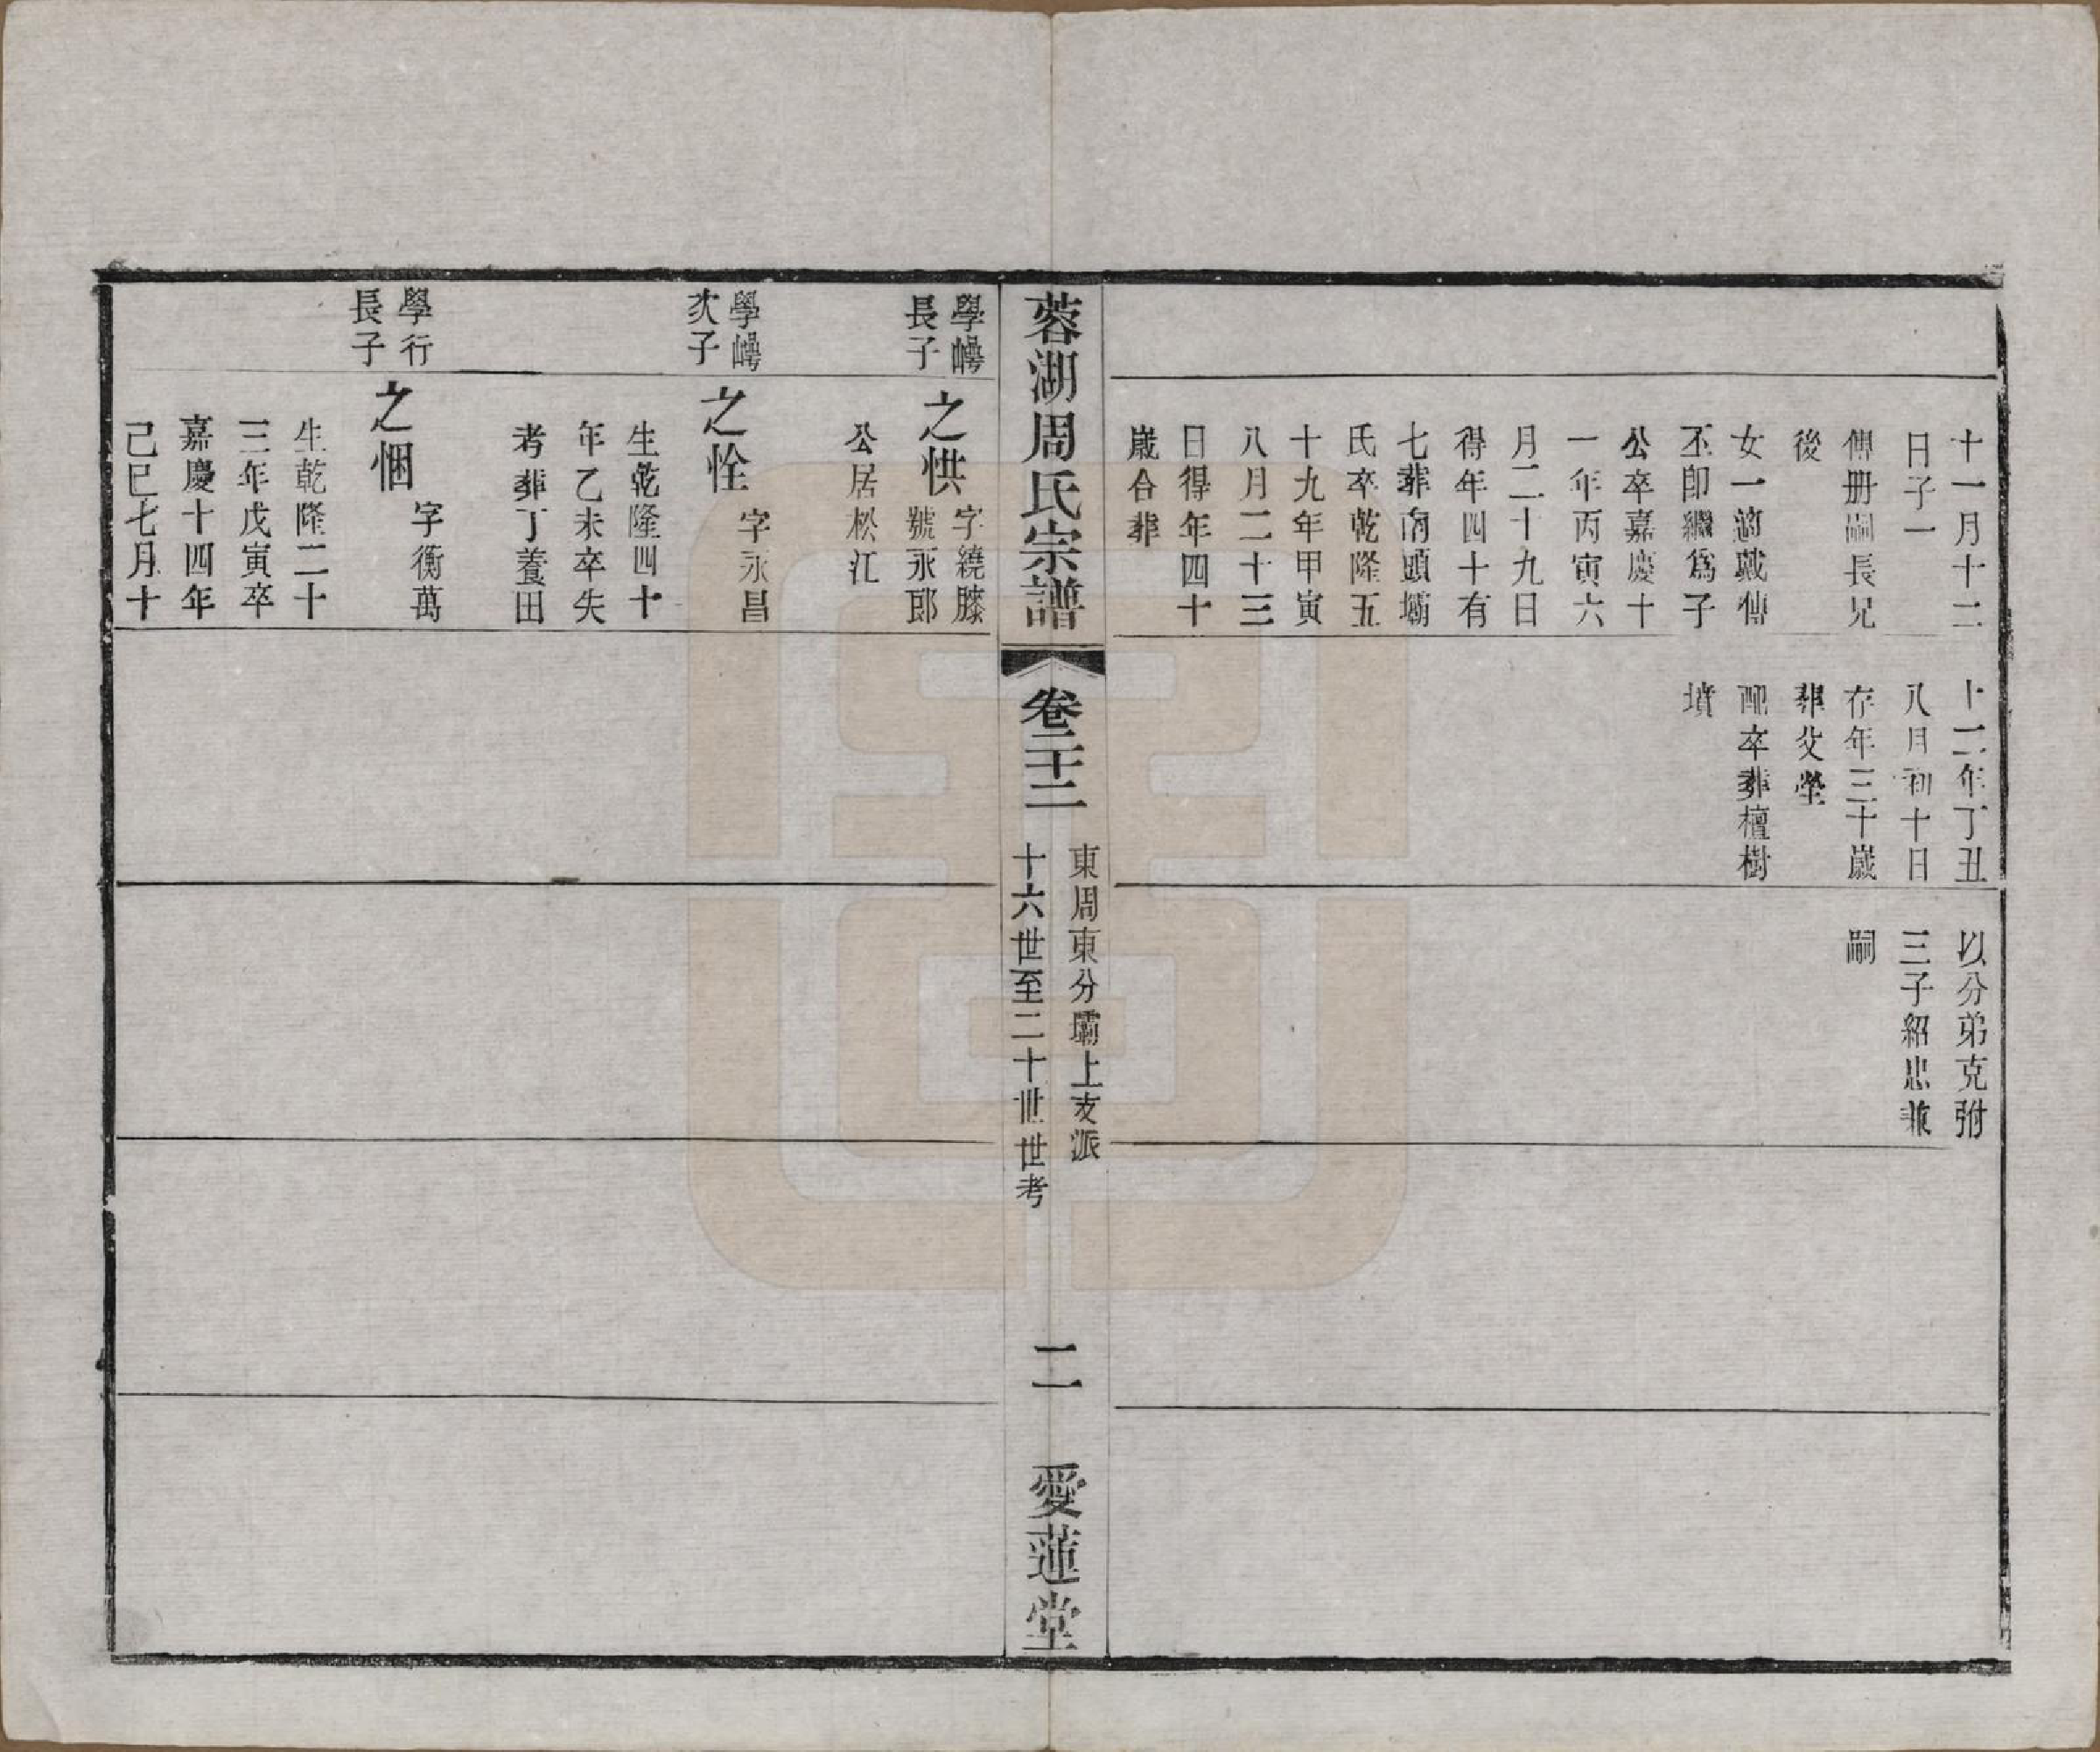 十一月十二
日子一
傳册嗣長兄
後
女一適戴傳
丕卽繼爲子
公卒嘉慶十
一年丙寅六
月二十九日
得年四十有
七葬南頭壩
氏卒乾隆五
十九年甲寅
八月二十三
日得年四十
歲合葬
十二年丁丑
八月初十日
存年三十歲
葬父塋
配卒葬檀樹
墳
以分弟克弣
三子紹忠兼
嗣
蓉湖周氏宗譜
卷二十二
東周東分壩上支派
十六世至二十世世考
二
愛蓮堂
學嶹
長子
之㤨
字繞膝
號永郎
公居松江
學嶹
次子
之恮
字永昌
生乾隆四十
年乙未卒失
考葬丁養田
學行
長子
之悃
字衡萬
生乾隆二十
三年戊寅卒
嘉慶十四年
己巳七月十